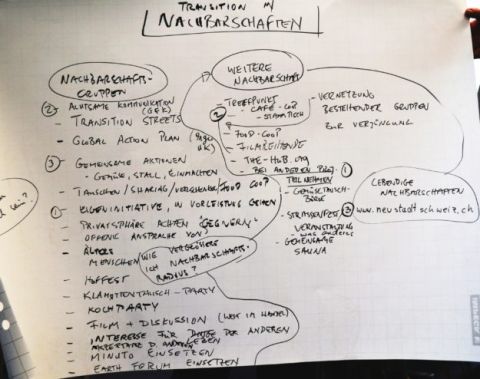 TRANSITION IN
NACHBARSCHAFTEN
NACHBARSCHAFTS-
GRUPPEN
② ACHTSAME KOMMUNIKATION
(GFK)
- TRANSITION STREETS
- GLOBAL ACTION PLAN
③ GEMEINSAME AKTIONEN
- GEMÜSE, STALL, EINMACHEN
- TAUSCHEN / SHARING / VERSCHENKE / FOOD COOP
① EIGENINITIATIVE, IN VORLEISTUNG GEHEN
- PRIVATSPHÄRE ACHTEN "GEGNERN"
- OFFENE ANSPRACHE VON
- ÄLTERE
MENSCHEN
WIE VERGRÖSSERE
ICH NACHBARSCHAFTS-
RADIUS?
- HOFFEST
- KLAMOTTENTAUSCH-PARTY
- KOCHPARTY
- FILM + DISKUSSION
- INTERESSE FÜR DER ANDEREN
- MINUTO EINSETZEN
- EARTH FORUM EINSETZEN
WEITERE
NACHBARSCHAFT
② TREFFPUNKT
- CAFÉ-COOP
- STAMMTISCH
- FOOD-COOP
- FILMREIHENDE
- THE-HUB.ORG
- BEI ANDEREN PROJ. ①
TEILNEHMEN
- GEMÜSETAUSCH-
BÖRSE
- STRASSENFEST ③
VERANSTALTUNG
- WAS ANDERES
- GEMEINSAME
SAUNA
- VERNETZUNG
BESTEHENDER GRUPPEN
ZUR VERJÜNGUNG
LEBENDIGE
NACHBARSCHAFTEN
www.neustadtschweiz.ch